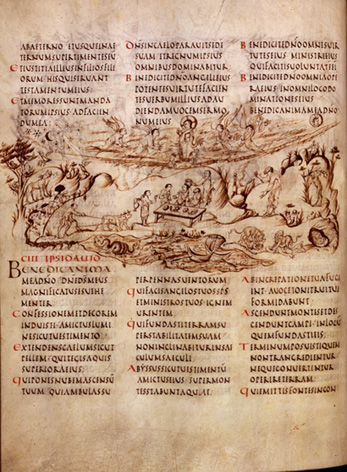 ABAETERNO ETUSQUEINAE
TERNUMSUPERTIMENTESEU
ETIUSTITIAILLIUSINFILIOSFILI
ORUM HISQUISERUANT
TESTAMENTUMEIUS
ETMEMORESSUNTMANDA
TORUMIPSIUSADFACIEN
DUMEA
DNSINCAELOPARAUITSEDE
SUAMETREGNUMIPSIUS
OMNIBUSDOMINABITUR
BENEDICITEDNOANGELIEIUS
POTENTESUIRTUTEFACIEN
TESUERBUMILLIUSADAU
DIENDAMUOCEMSERMO
NUMEIUS
BENEDICITEDNOOMNESUIR
TUTESEIUS MINISTRIEIUS
QUIFACITISUOLUNTATEEI
BENEDICITEDNOOMNIAOPE
RAEIUS INOMNILOCODO
MINATIONISEIUS
BENEDICANIMAMEADNO
CIII IPSIDAUID
BENEDICANIMA
MEADNO DNEDSMEUS
MAGNIFICATUSESUEHE
MENTER
CONFESSIONEMETDECOREM
INDUISTI AMICTUSLUMI
NESICUTUESTIMENTO
EXTENDENSCAELUMSICUT
PELLEM QUITEGISAQUIS
SUPERIORAEIUS
QUIPONISNUBEMASCENSU
TUUM QUIAMBULASSU
PERPENNASUENTORUM
QUIFACISANGELOSTUOSSPS
ETMINISTROSTUOSIGNEM
URENTEM
QUIFUNDASTITERRAMSU
PERSTABILITATEMSUAM
NONINCLINABITURINSAE
CULUMSAECULI
ABYSSUSSICUTUESTIMENTU
AMICTUSEIUS SUPERMON
TESSTABUNTAQUAE
ABINCREPATIONETUAFUGI
ENT AUOCETONITRUITUI
FORMIDABUNT
ASCENDUNTMONTESETDES
CENDUNTCAMPI INLOCU
QUEMFUNDASTIEIS
TERMINUMPOSUISTIQUEM
NONTRANSGREDIENTUR
NEQUECONUERTENTUR
OPERIRETERRAM
QUIEMITTISFONTESINCON